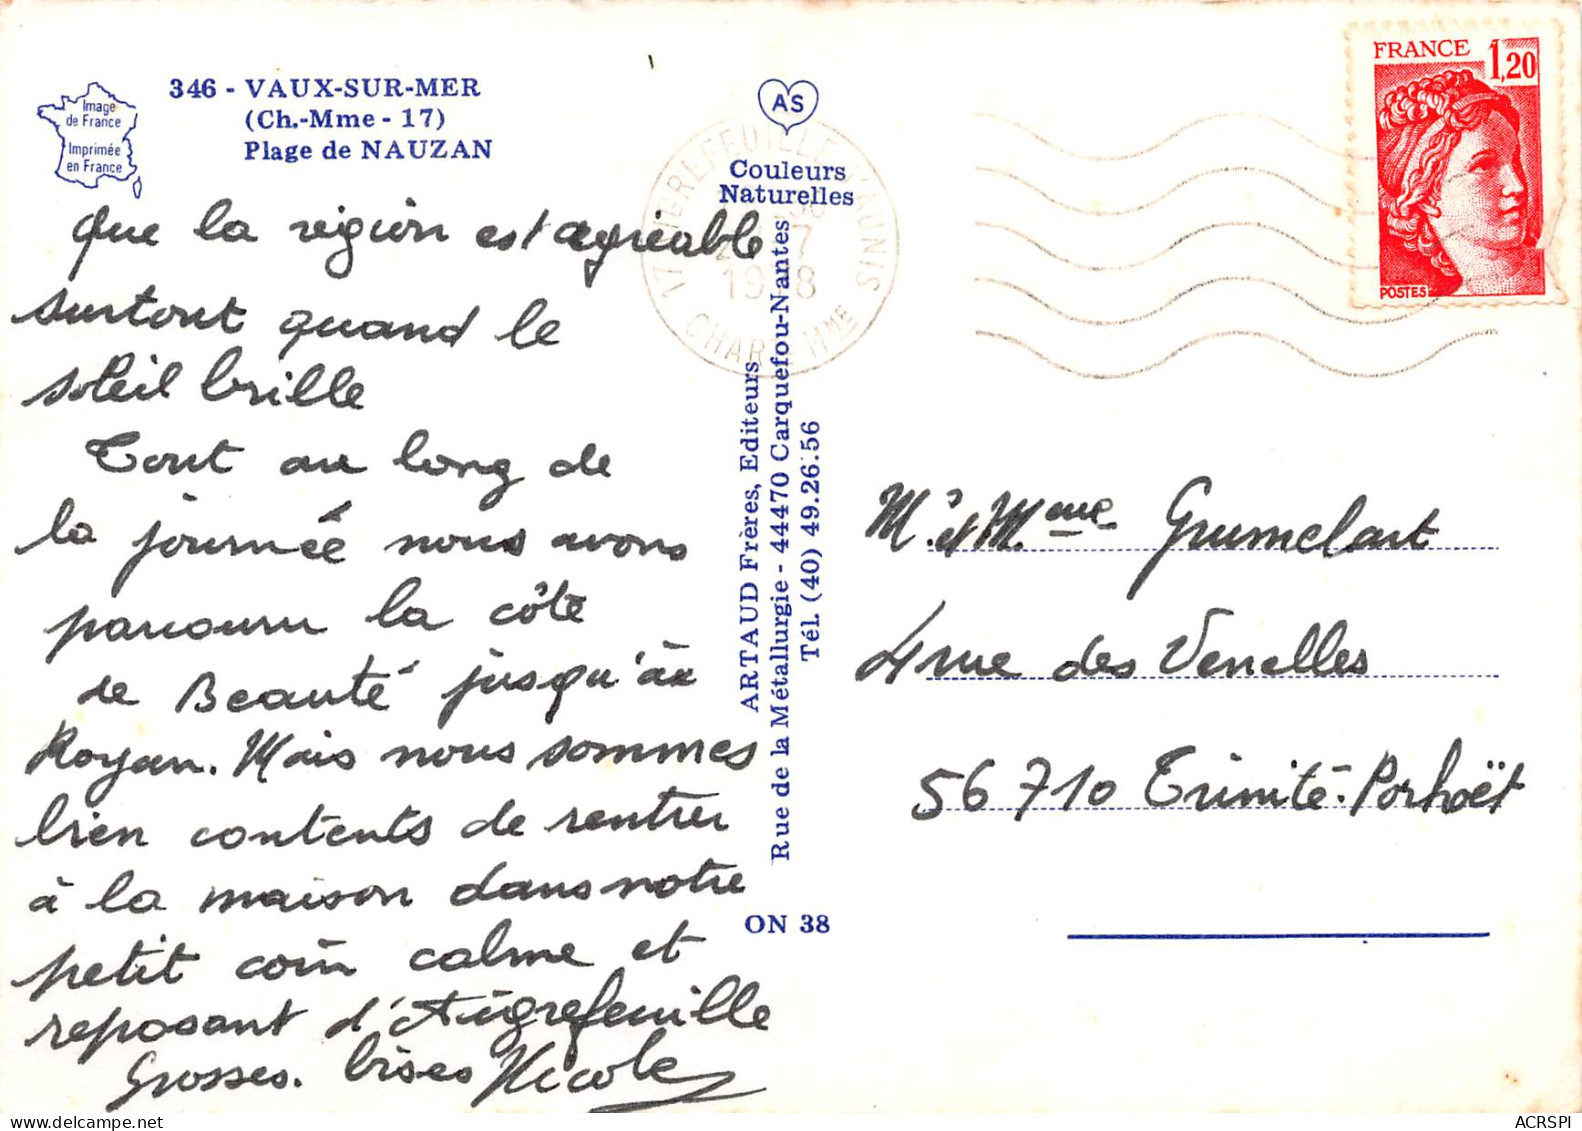 346 - VAUX-SUR-MER
(Ch.-Mme - 17)
Plage de NAUZAN
Image
de France
Imprimée
en France
que la région est agréable
surtout quand le
soleil brille
Tout au long de
la journée nous avons
parcouru la côte
de Beauté jusqu'à
Royan. Mais nous sommes
bien contents de rentrer
à la maison dans notre
petit coin calme et
reposant d'Aigrefeuille
Grosses. bises Nicole
AS
Couleurs
Naturelles
ARTAUD Frères, Editeurs
Rue de la Métallurgie - 44470 Carquefou-Nantes
Tél. (40) 49.26.56
ON 38
17 AIGREFEUILLE D'AUNIS
7
1978
CHAR - MME
FRANCE 1,20
POSTES
Mr et Mme Grumelart
4 rue des Venelles
56710 Trinité-Porhoët
ACRSPI